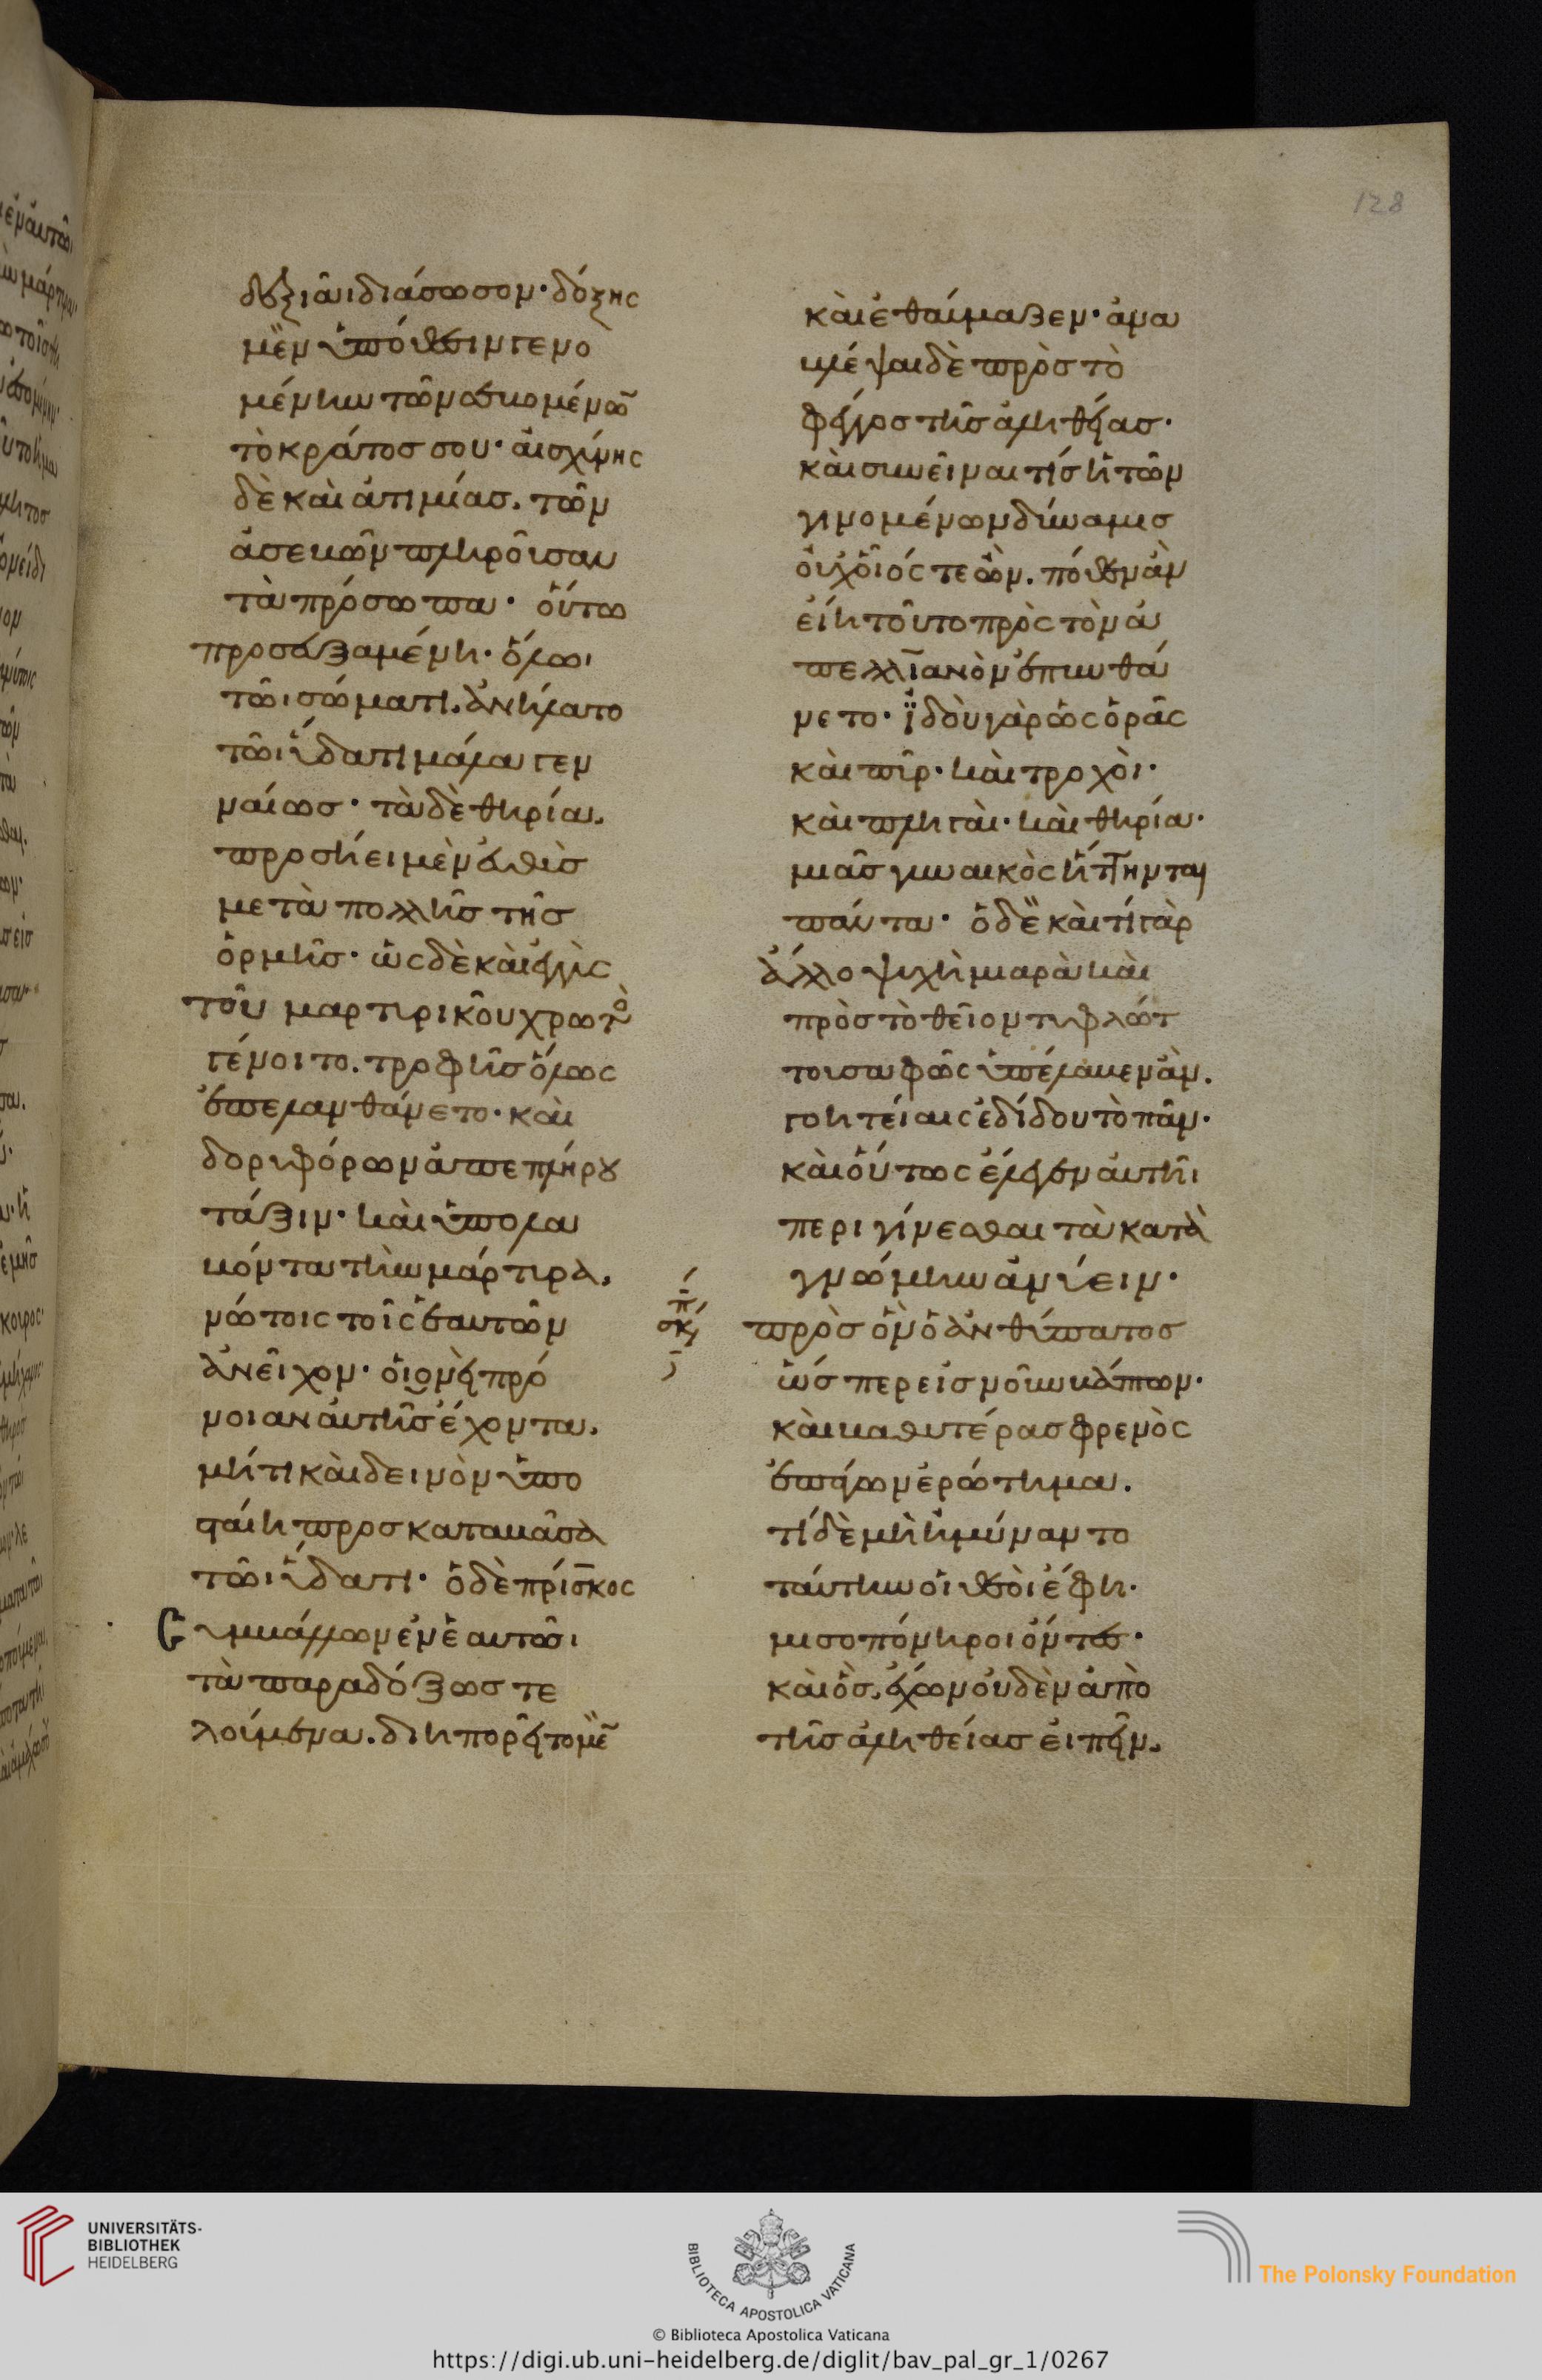 128
δεξιᾶι διάσωσον· δόξης
μὲν ὑπόθεσιν γενο
μένην τῶν σεβομένων
τὸ κράτος σου· αἰσχύνης
δὲ καὶ ἀτιμίας. τῶν
ἀσεβῶν πληροῦσαν
τὰ πρόσωπα· οὕτω
προσευξαμένη· ὅλωι
τῶι σώματι. ἀνήλατο
τῶι ὕδατι μάλα γεν
ναίως· τὰ δὲ θηρία.
προσήει μὲν εὐθὺς
μετὰ πολλῆς τῆς
ὁρμῆς· ὡς δὲ καὶ ἐγγὺς
τοῦ μαρτυρικοῦ χρωτὸς
γένοιτο. τροφῆς ὅλως
ἐπελανθάνετο· καὶ
δορυφόρων ἀπεπλήρου
τάξιν· καὶ ὑπολα
βόντα τὴν μάρτυρα.
νώτοις τοῖς ἑαυτῶν
ἀνεῖχον· οἱονεὶ πρό
νοιαν αὐτῆς ἔχοντα.
μήτι καὶ δεινὸν ὑπο
σταίη προσκαταβᾶσα
τῶι ὕδατι· ὁ δὲ πρίσκος
Συμβάλλων ἐν ἑαυτῶι
τὰ παραδόξως τε
λούμενα. διηπορεῖτο μὲν
καὶ ἐθαύμαζεν· ἀνα
βλέψαι δὲ πρὸς τὸ
φέγγος τῆς ἀληθείας·
καὶ συνεῖναι τίς ἡ τῶν
γινομένων δύναμις
οὐχ οἷός τε ὤν. πόθεν ἂν
εἴη τοῦτο πρὸς τὸν ἀ
πελλιανὸν ἐπυνθά
νετο· ἰδοὺ γὰρ ὡς ὁρᾶς
καὶ πῦρ· καὶ τροχοὶ·
καὶ πληγαὶ· καὶ θηρία·
μιᾶς γυναικὸς ἥττηνται
πάντα· ὁ δὲ καὶ τί γὰρ
ἄλλο ψυχὴ μιαρὰ καὶ
πρὸς τὸ θεῖον τυφλώτ
τουσα φῶς ὑπέλαβεν ἂν.
γοητείαις ἐδίδου τὸ πᾶν·
καὶ οὕτως ἔλεγεν αὐτῆι
περιγίνεσθαι τὰ κατὰ
γνώμην ἀνύειν·
πρὸς ὃν ὁ ἀνθύπατος
ὥσπερ εἰς νοῦν βλέπων·
καὶ βαθυτέρας φρενὸς
ἐπάγων ἐρώτημα.
τί δὲ μὴ ἠμύναντο
ταύτην οἱ θεοὶ ἔφη·
μισοπόνηροι ὄντες·
καὶ ὃς. ἔχων οὐδὲν ἀπὸ
τῆς ἀληθείας εἰπεῖν.
UNIVERSITÄTS-
BIBLIOTHEK
HEIDELBERG
BIBLIOTECA APOSTOLICA VATICANA
The Polonsky Foundation
© Biblioteca Apostolica Vaticana
https://digi.ub.uni-heidelberg.de/diglit/bav_pal_gr_1/0267